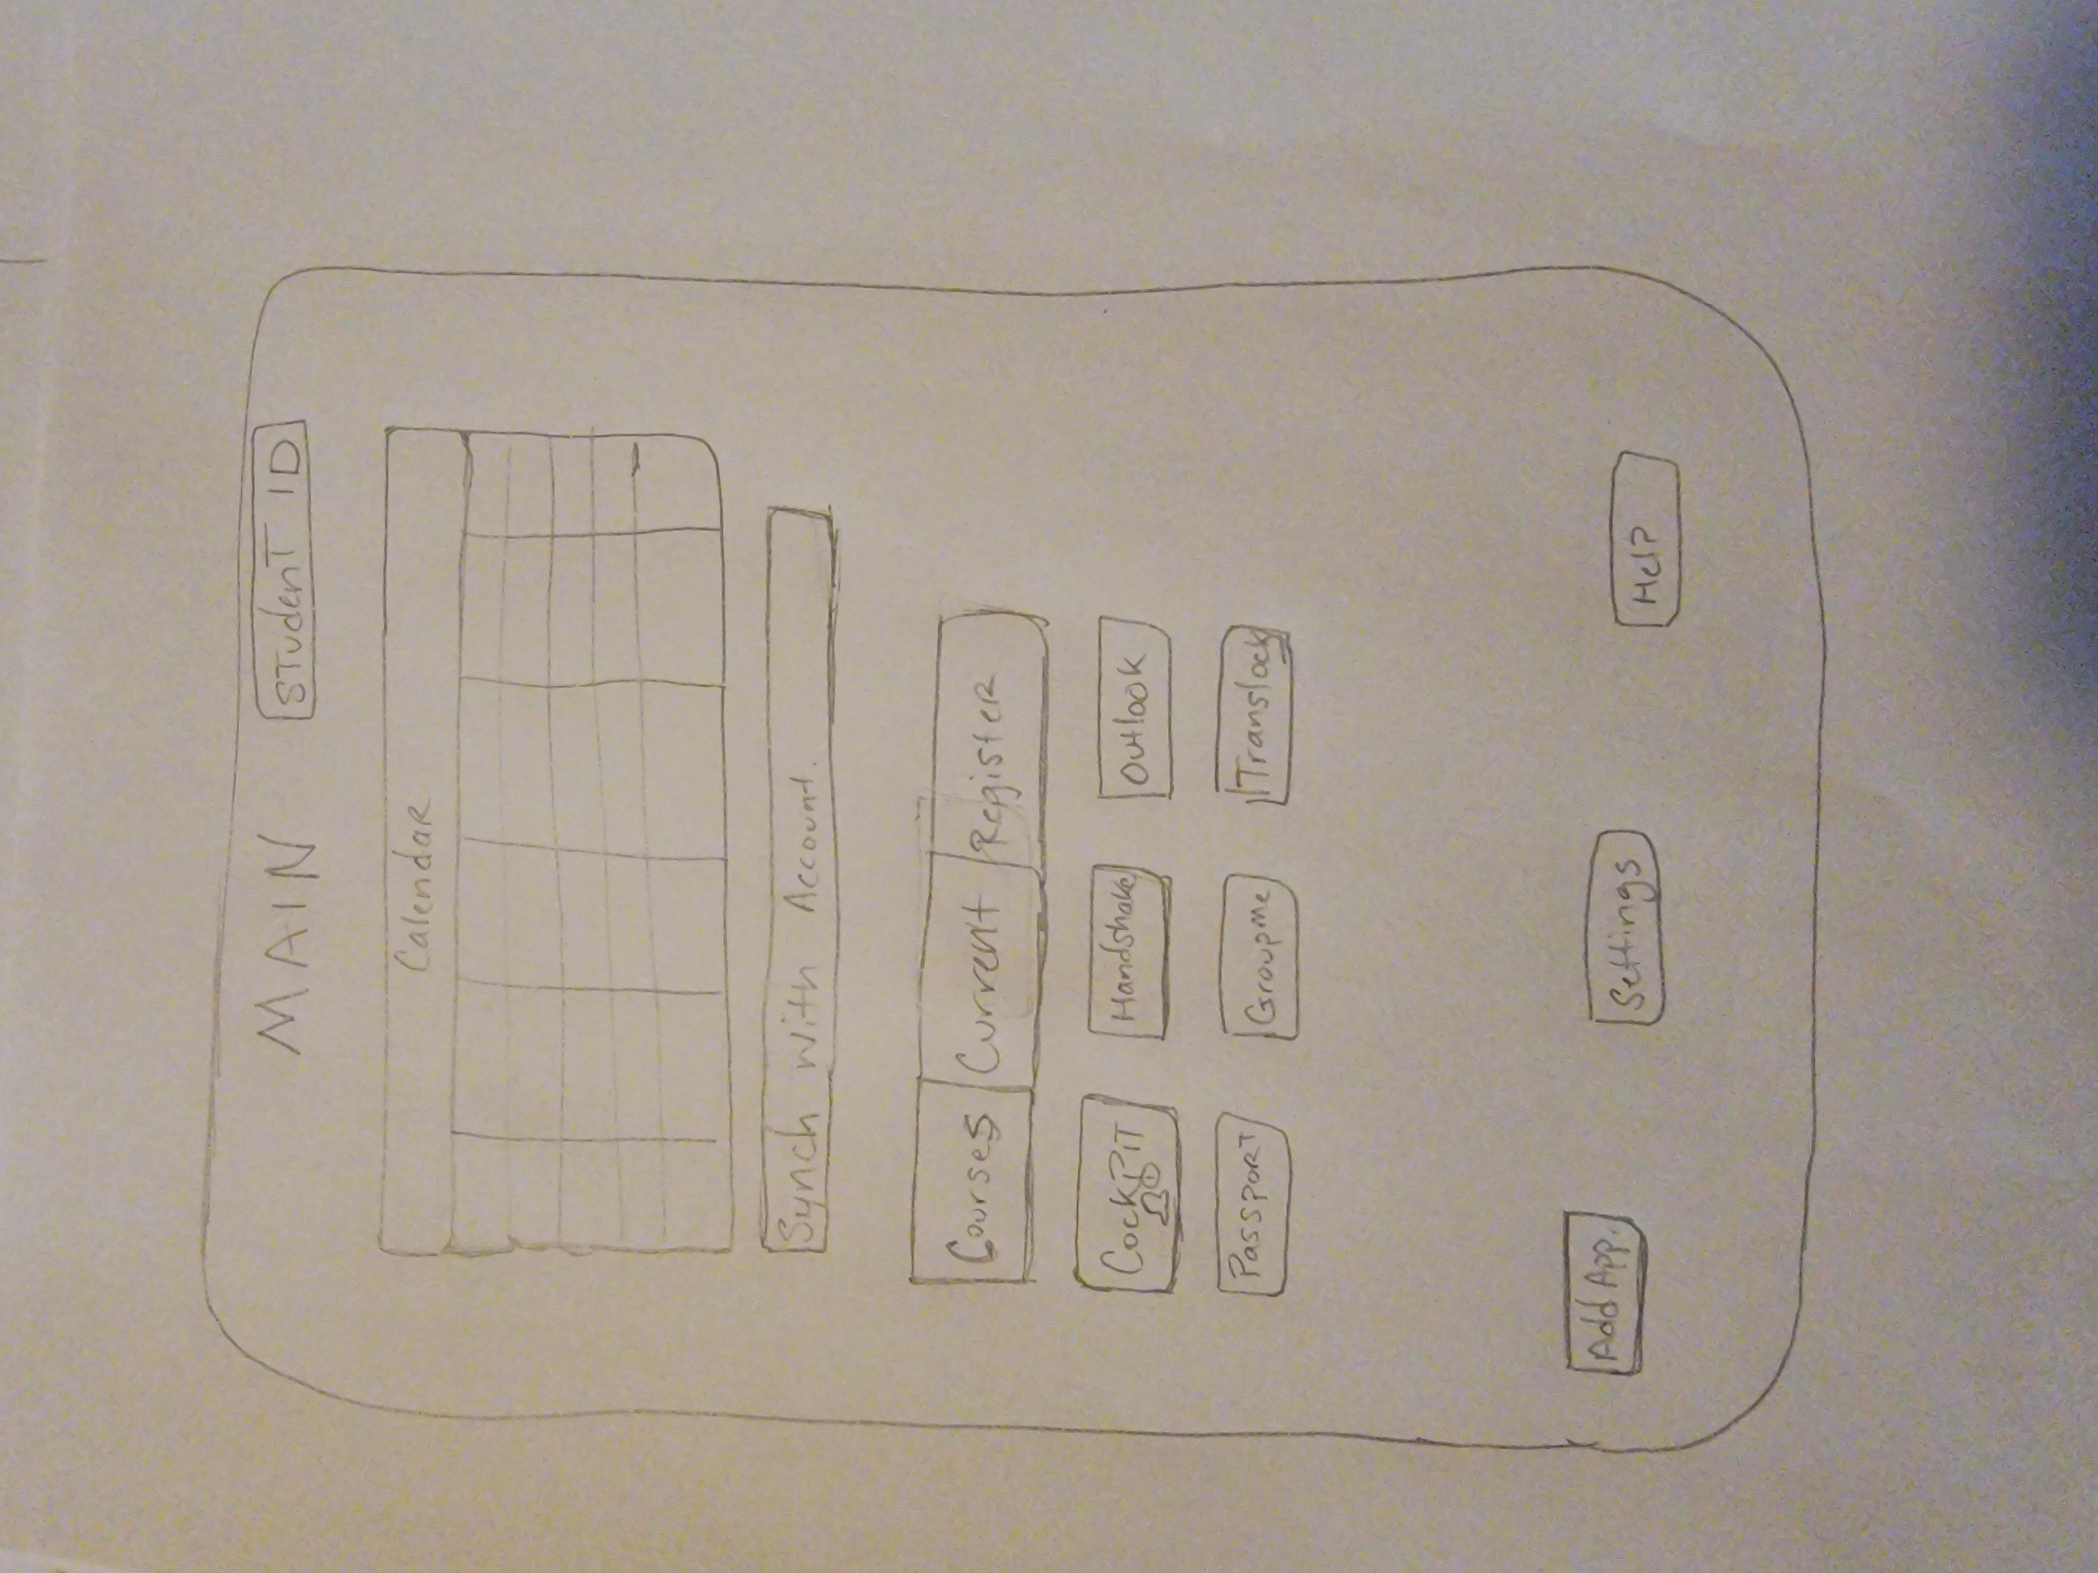 MAIN
STudenT ID
Calendar
Synch with Account.
Courses Current Register
CockPiT
Handshake
Outlook
Passport
Groupme
Translock
Add App.
Settings
Help